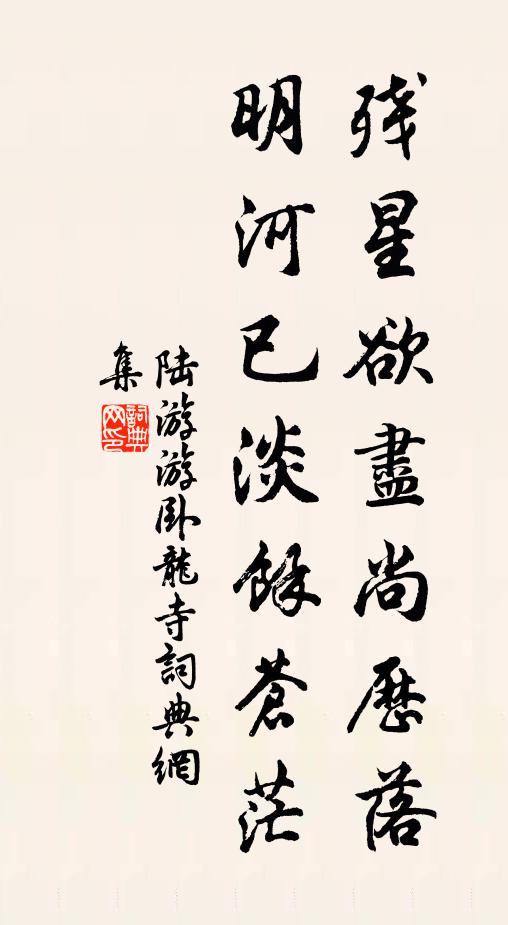 残星欲盡尚歷落
明河已淡餘蒼茫
陆游游卧龍寺詞典網
集
詞典网印